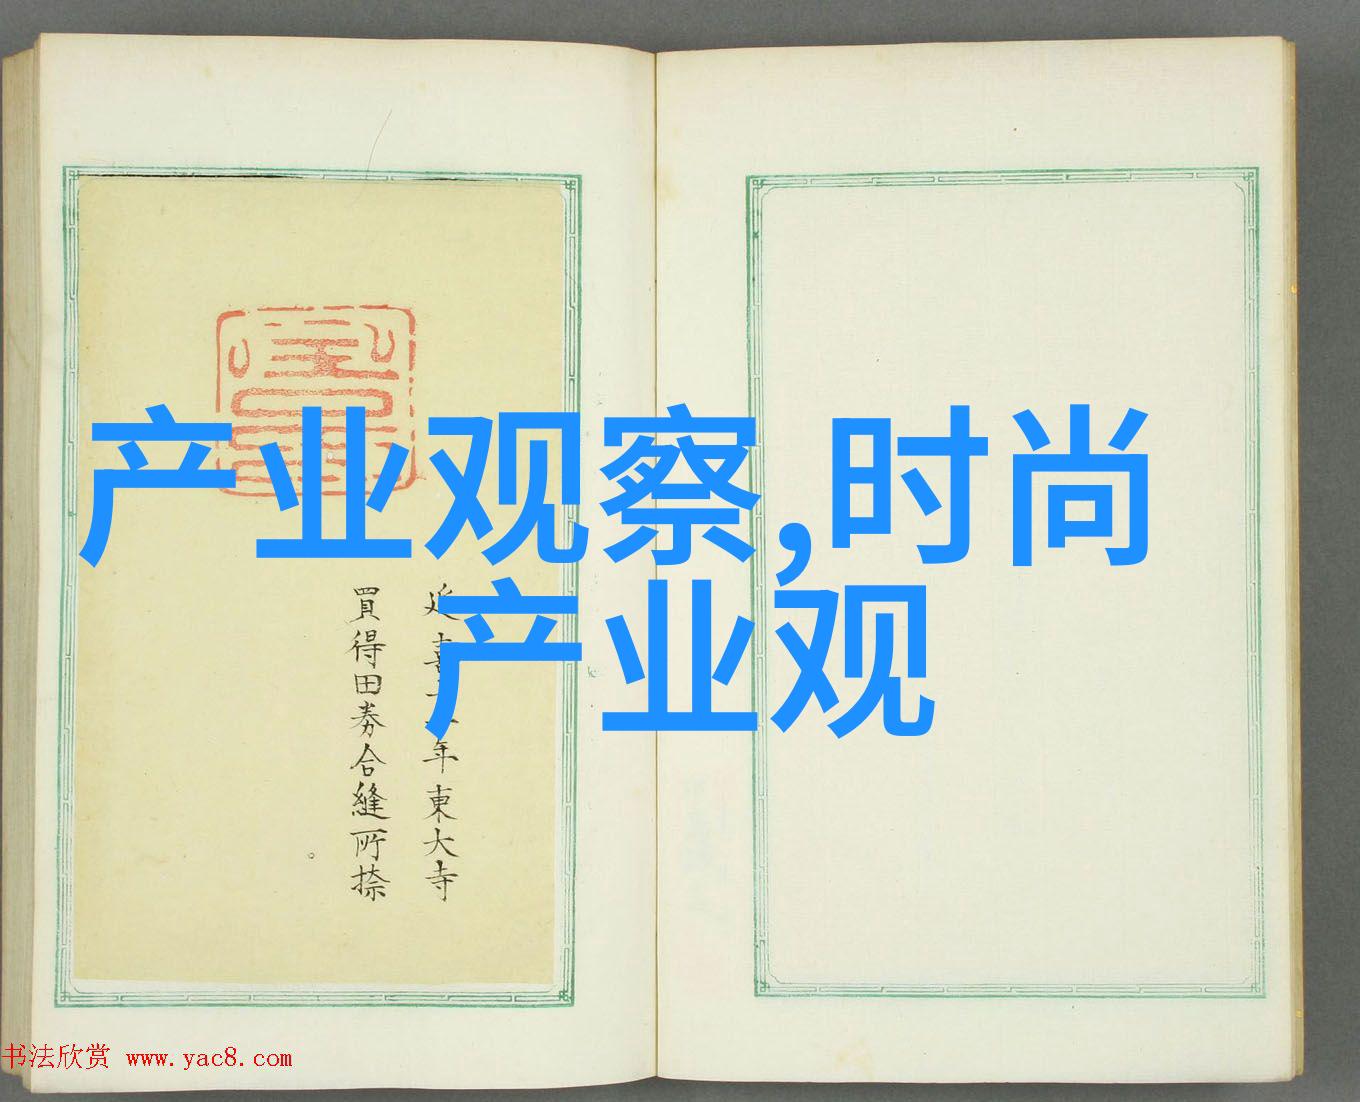 产业观察,时尚
产业观
延喜二十年東大寺
買得田券合縫所捺
书法欣赏 www.yac8.com